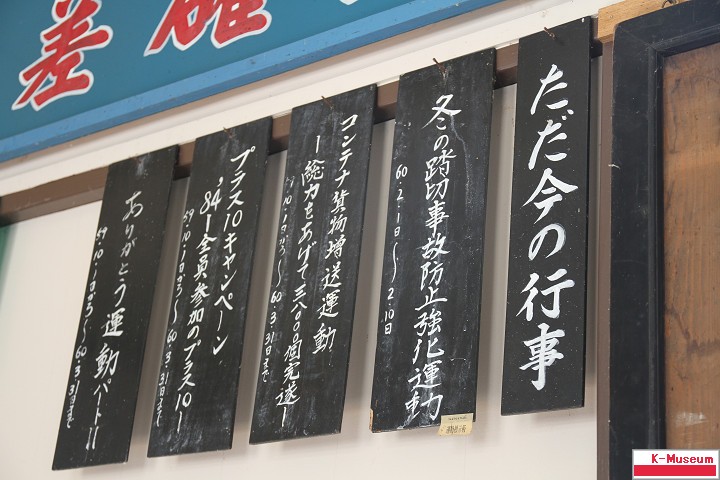 ただ今の行事
冬の踏切事故防止強化運動
60.2.1日〜2.10日
コンテナ貨物増送運動
ー総力をあげて三八〇〇〇個完遂ー
59.10.1日から〜60.3.31日まで
プラス10キャンペーン
'84ー全員参加のプラス10ー
59.10.1日から〜60.3.31日まで
ありがとう運動パートII
59.10.1日から〜60.3.31日まで
差確
K-Museum